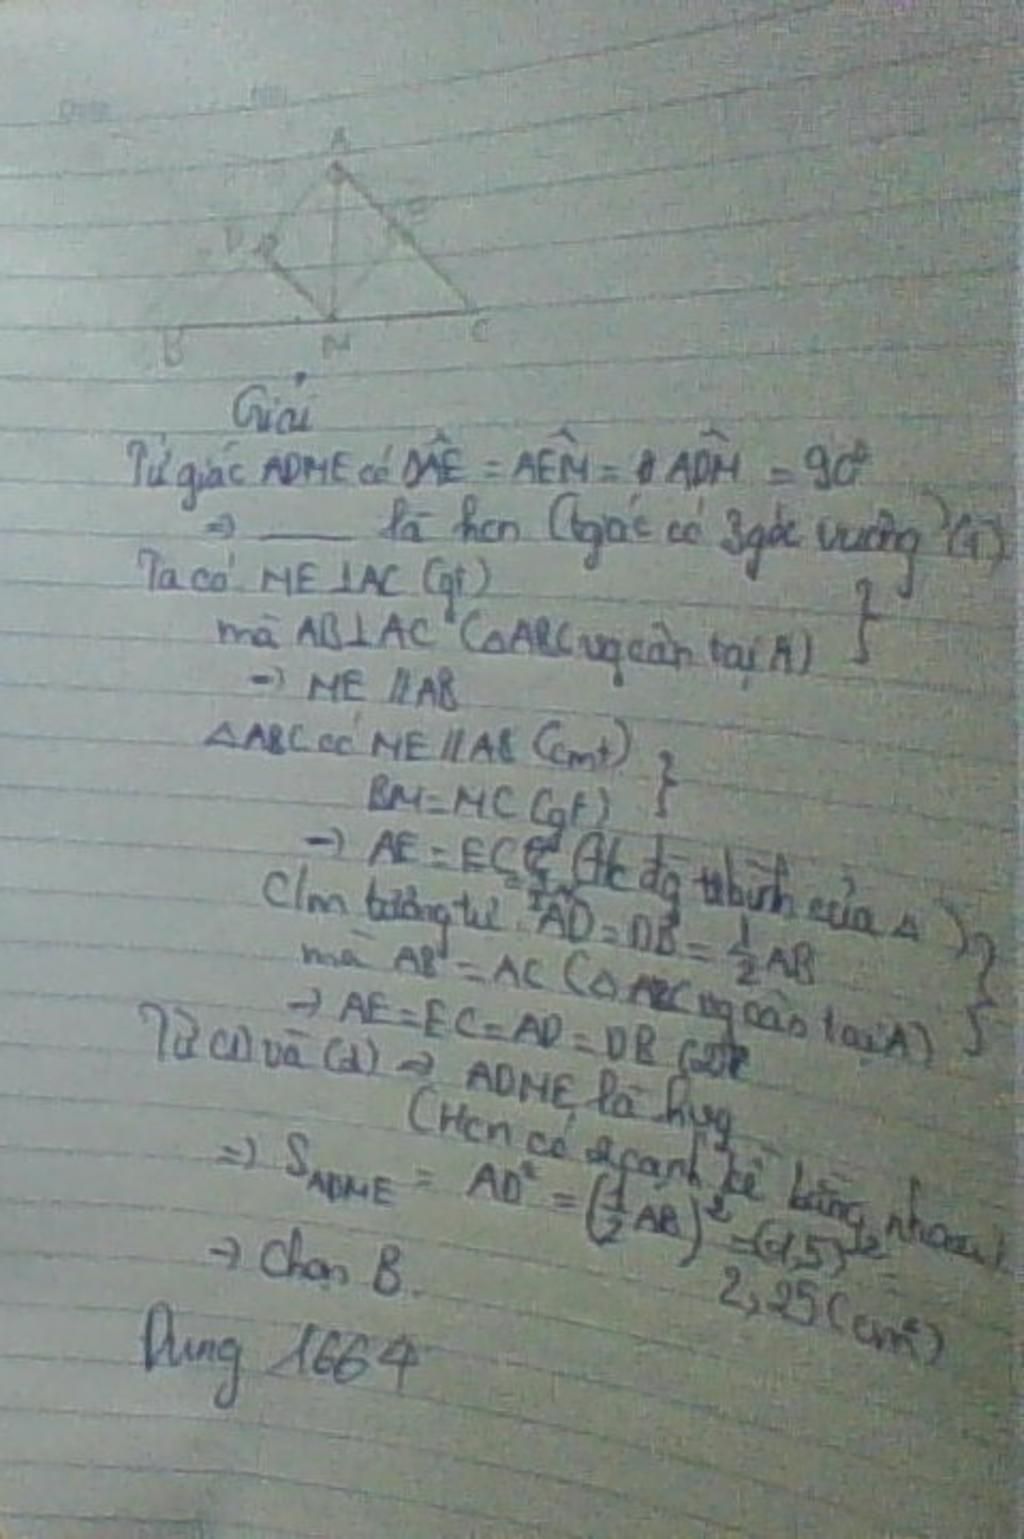 A
D
E
B
M
C
Giải
Tứ giác ADME có DÂE = AÊM = ADM̂ = 90°
=> ___ là hcn (tgiác có 3góc vuông) (1)
Ta có ME ⊥ AC (gt)
mà AB ⊥ AC (△ABC vg cân tại A) }
→ ME // AB
△ABC có ME // AB (cmt)
BM = MC (gt) }
→ AE = EC (Tc đg tr bình của △)
C/m tương tự: AD = DB = 1/2 AB
mà AB = AC (△ABC vg cân tại A) }
→ AE = EC = AD = DB (2)
Từ (1) và (2) → ADME là hvg
(Hcn có 2 cạnh kề bằng nhau)
=> S ADME = AD² = (1/2 AB)² = (1,5)² =
2,25 (cm²)
→ Chọn B.
Dung 1664